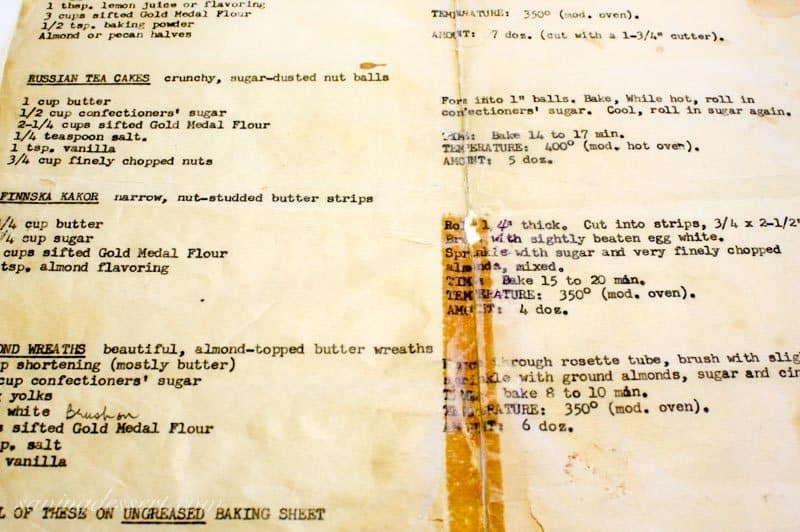 1 tbsp. lemon juice or flavoring
3 cups sifted Gold Medal Flour
1/2 tsp. baking powder
Almond or pecan halves
TEMPERATURE: 350° (mod. oven).
AMOUNT: 7 doz. (cut with a 1-3/4" cutter).
RUSSIAN TEA CAKES crunchy, sugar-dusted nut balls
1 cup butter
1/2 cup confectioners' sugar
2-1/4 cups sifted Gold Medal Flour
1/4 teaspoon salt.
1 tsp. vanilla
3/4 cup finely chopped nuts
Form into 1" balls. Bake, While hot, roll in
confectioners' sugar. Cool, roll in sugar again.
TIME: Bake 14 to 17 min.
TEMPERATURE: 400° (mod. hot oven).
AMOUNT: 5 doz.
FINNSKA KAKOR narrow, nut-studded butter strips
/4 cup butter
/4 cup sugar
cups sifted Gold Medal Flour
tsp. almond flavoring
Roll 1/4" thick. Cut into strips, 3/4 x 2-1/2"
Brush with sightly beaten egg white.
Sprinkle with sugar and very finely chopped
almonds, mixed.
TIME: Bake 15 to 20 min.
TEMPERATURE: 350° (mod. oven).
AMOUNT: 4 doz.
OND WREATHS beautiful, almond-topped butter wreaths
p shortening (mostly butter)
cup confectioners' sugar
yolks
white Brush on
sifted Gold Medal Flour
p. salt
vanilla
through rosette tube, brush with slig
sprinkle with ground almonds, sugar and cin
TIME: bake 8 to 10 min.
TEMPERATURE: 350° (mod. oven).
AMOUNT: 6 doz.
L OF THESE ON UNGREASED BAKING SHEET